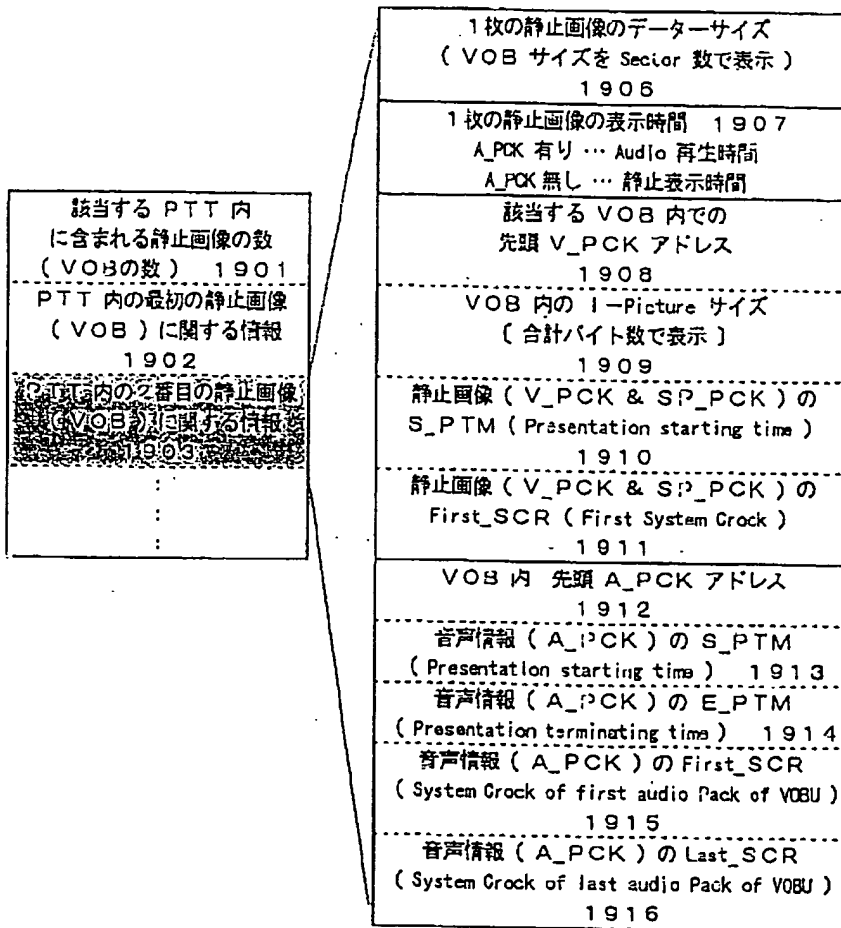 該当する PTT 内
に含まれる静止画像の数
(VOBの数) 1901
PTT 内の最初の静止画像
(VOB)に関する情報
1902
PTT 内の2番目の静止画像
(VOB)に関する情報
1903
:
:
:
1枚の静止画像のデーターサイズ
(VOB サイズを Sector 数で表示)
1906
1枚の静止画像の表示時間 1907
A_PCK 有り … Audio 再生時間
A_PCK 無し … 静止表示時間
該当する VOB 内での
先頭 V_PCK アドレス
1908
VOB 内の I-Picture サイズ
[合計バイト数で表示]
1909
静止画像(V_PCK & SP_PCK)の
S_PTM(Presentation starting time)
1910
静止画像(V_PCK & SP_PCK)の
First_SCR(First System Crock)
1911
VOB 内 先頭 A_PCK アドレス
1912
音声情報(A_PCK)の S_PTM
(Presentation starting time) 1913
音声情報(A_PCK)の E_PTM
(Presentation terminating time) 1914
音声情報(A_PCK)の First_SCR
(System Crock of first audio Pack of VOBU)
1915
音声情報(A_PCK)の Last_SCR
(System Crock of last audio Pack of VOBU)
1916